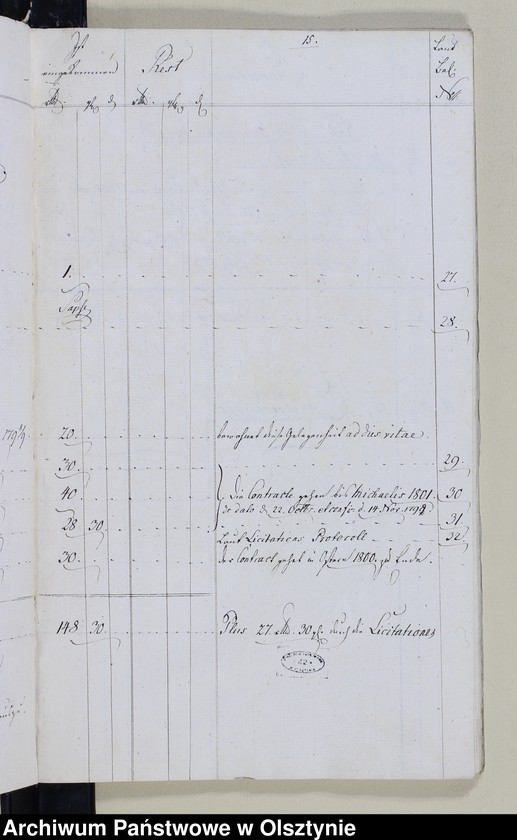 15.
Ist eingekommen
Rest
Laut Bel: No
1.
27.
28.
179
20. bewohnet diese Gelegenheit ad dies vitae.
30. 29.
40. die Contracte gehen bis Michaelis 1801. 30
de dato d. 22. Octbr. et confir: d. 14. Nov. 1798
28 30 31
Laut Licitations Protocoll 32.
30. der Contract gehet in Ostern 1800. zu Ende.
148 30 Plus 27 30 durch die Licitationes
Archiwum Państwowe w Olsztynie